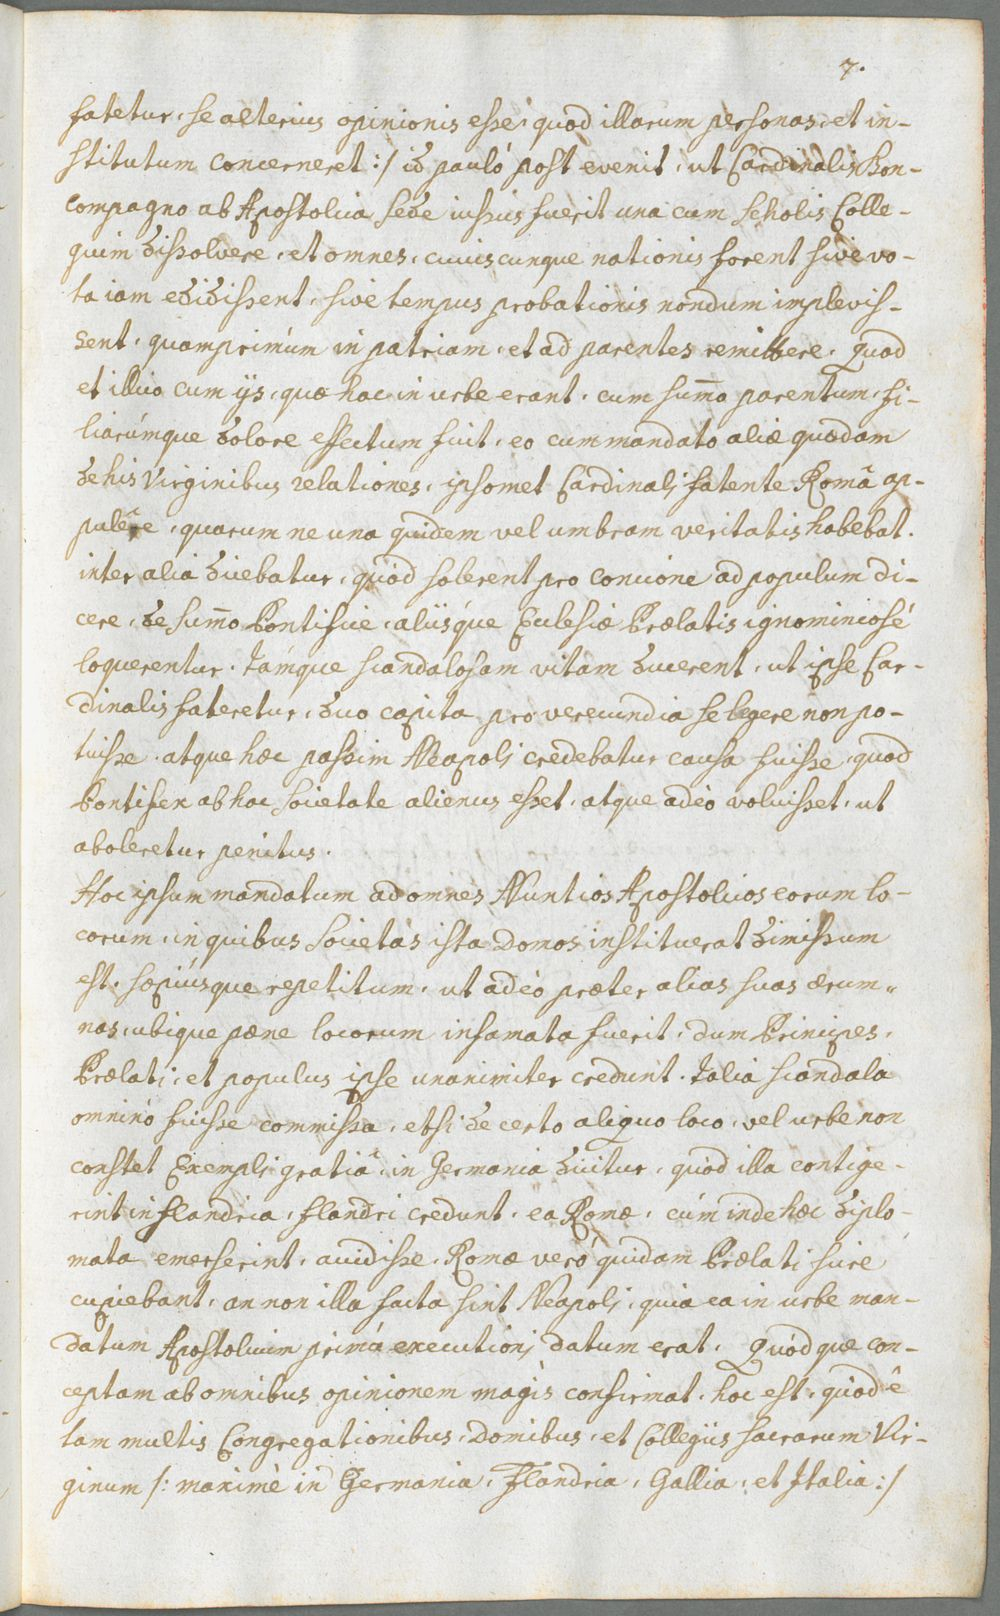 7.
fatetur, se alterius opinionis esse, quod illarum personas, et in-
stitutum concerneret :/ id pauló post evenit, ut Cardinalis Bon-
compagno ab Apostolica sede iussus fuerit una cum scholis Colle-
gium dissolvere, et omnes, cuiuscunque nationis forent sive vo-
ta iam edidissent, sive tempus probationis nondum implevis-
sent, quamprimúm in patriam, et ad parentes remittere. Quod
et illico cum ijs, quæ hac in urbe erant, cum sum̄o parentum, fi-
liarúmque dolore effectum fuit, eo cum mandato aliæ quædam
de his Virginibus relationes, ipsomet Cardinali fatente Romā ap-
pulêre, quarum ne una quidem vel umbram veritatis habebat.
inter alia dicebatur, quód solerent pro concione ad populum di-
cere, de sum̄o Pontifice, alijsque Ecclesiæ Prælatis ignominiosé
loquerentur. Támque scandalosam vitam ducerent, ut ipse Car-
dinalis fateretur, duo capita præ verecundia se legere non po-
tuisse. atque hæc passim Neapoli credebatur causa fuisse, quod
Pontifex ab hac societate alienus esset, atque adeò voluisset, ut
aboleretur penitus.
Hoc ipsum mandatum ad omnes Nuntios Apostolicos eorum lo-
corum, in quibus Societas ista Domos instituerat dimissum
est, sæpiúsque repetitum, ut adeò præter alias suas ærum-
nas, ubique pæne locorum infamata fuerit, dum Principes,
Prælati, et populus ipse unanimiter credunt. Talia scandala
omninò fuisse commissa, etsi de certo aliquo loco, vel urbe non
constet Exempli gratiâ, in Germania dicitur, quód illa contige-
rint in flandria, flandri credunt, ea Romæ, cúm inde hæc diplo-
mata emerserint, accidisse, Romæ veró quidam Prælati scire
cupiebant, an non illa facta sint Neapoli, quia ea in urbe man-
datum Apostolicum primú executioni datum erat. Quódque con-
ceptam ab omnibus opinionem magis confirmat, hoc est, quod ê
tam multis Congregationibus, Domibus, et Collegijs sacrarum Vir-
ginum /: maximè in Germania, Flandria, Gallia, et Italia :/